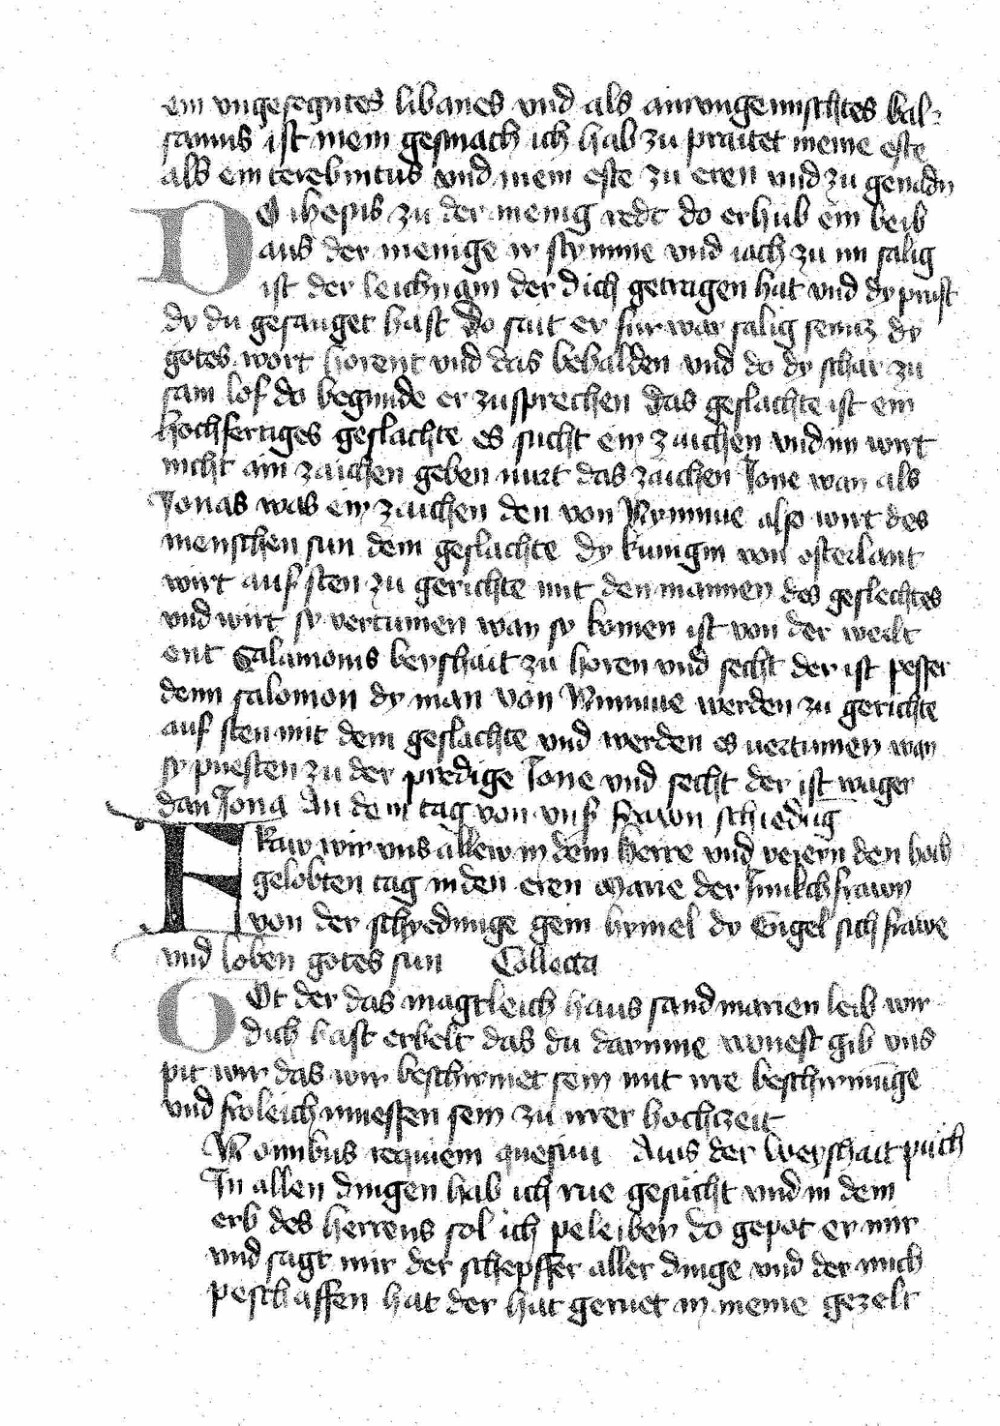 ein vngesegntes libanes vnd als ain vngemischtes bal-
samus ist mein gesmach ich hab zu praitet meine este
als ein terebintus vnd mein este zu eren vnd zu genadn
DO ihesus zu der menig redt do erhub ein beib
aus der menige ir stymme vnd iach zu im salig
ist der leichnam der dich getragen hat vnd dy prust
dy du gesauget hast Do sait er fur war salig seintz dy
gotes wort horent vnd das behalden vnd do dy schar zu
sam lof do begunde er zu sprechen das geslachte ist ein
hochfertiges geslachte es sucht ein zaichen vnd im wirt
nicht ain zaichen geben nurt das zaichen Jone wan als
Jonas was ein zaichen den von Nynniue also wirt des
menschen sun dem geslachte dy kunigin von osterlant
wirt auf sten zu gerichte mit den mannen des geslechtes
vnd wirt sy vertumen wan sy komen ist von der werlt
ent Salamonis beyshait zu horen vnd secht der ist pesser
denn salomon dy man von Niniue werden zu gerichte
auf sten mit dem geslachte vnd werden es uertumen wan
sy puesten zu der predige Jone vnd secht der ist wager
dan Jona An dem tag von vnser frawn schiedung
FRaw wir vns allew in dem herre vnd veiern den hoch
gelobten tag in den eren Marie der Junkchfrawn
von der schyedunge gein hymel dy Engel sich frawe
vnd loben gotes sun Collecta
GOt der das magtleich haus sand marien leib wir
dich hast erbelt das du darinne wonest gib vns
pit wir das wir beschirmet sein mit irre beschirmunge
vnd froleich muessen sein zu irrer hochzeit
IN omnibus requiem quesiui Aus der weyshait puch
In allen dingen hab ich rue gesucht vnd in dem
erb des herrens sol ich peleiben do gepot er mir
vnd sagt mir der schepffer aller dinge vnd der mich
peschaffen hat der hat geruet in meine gezelt